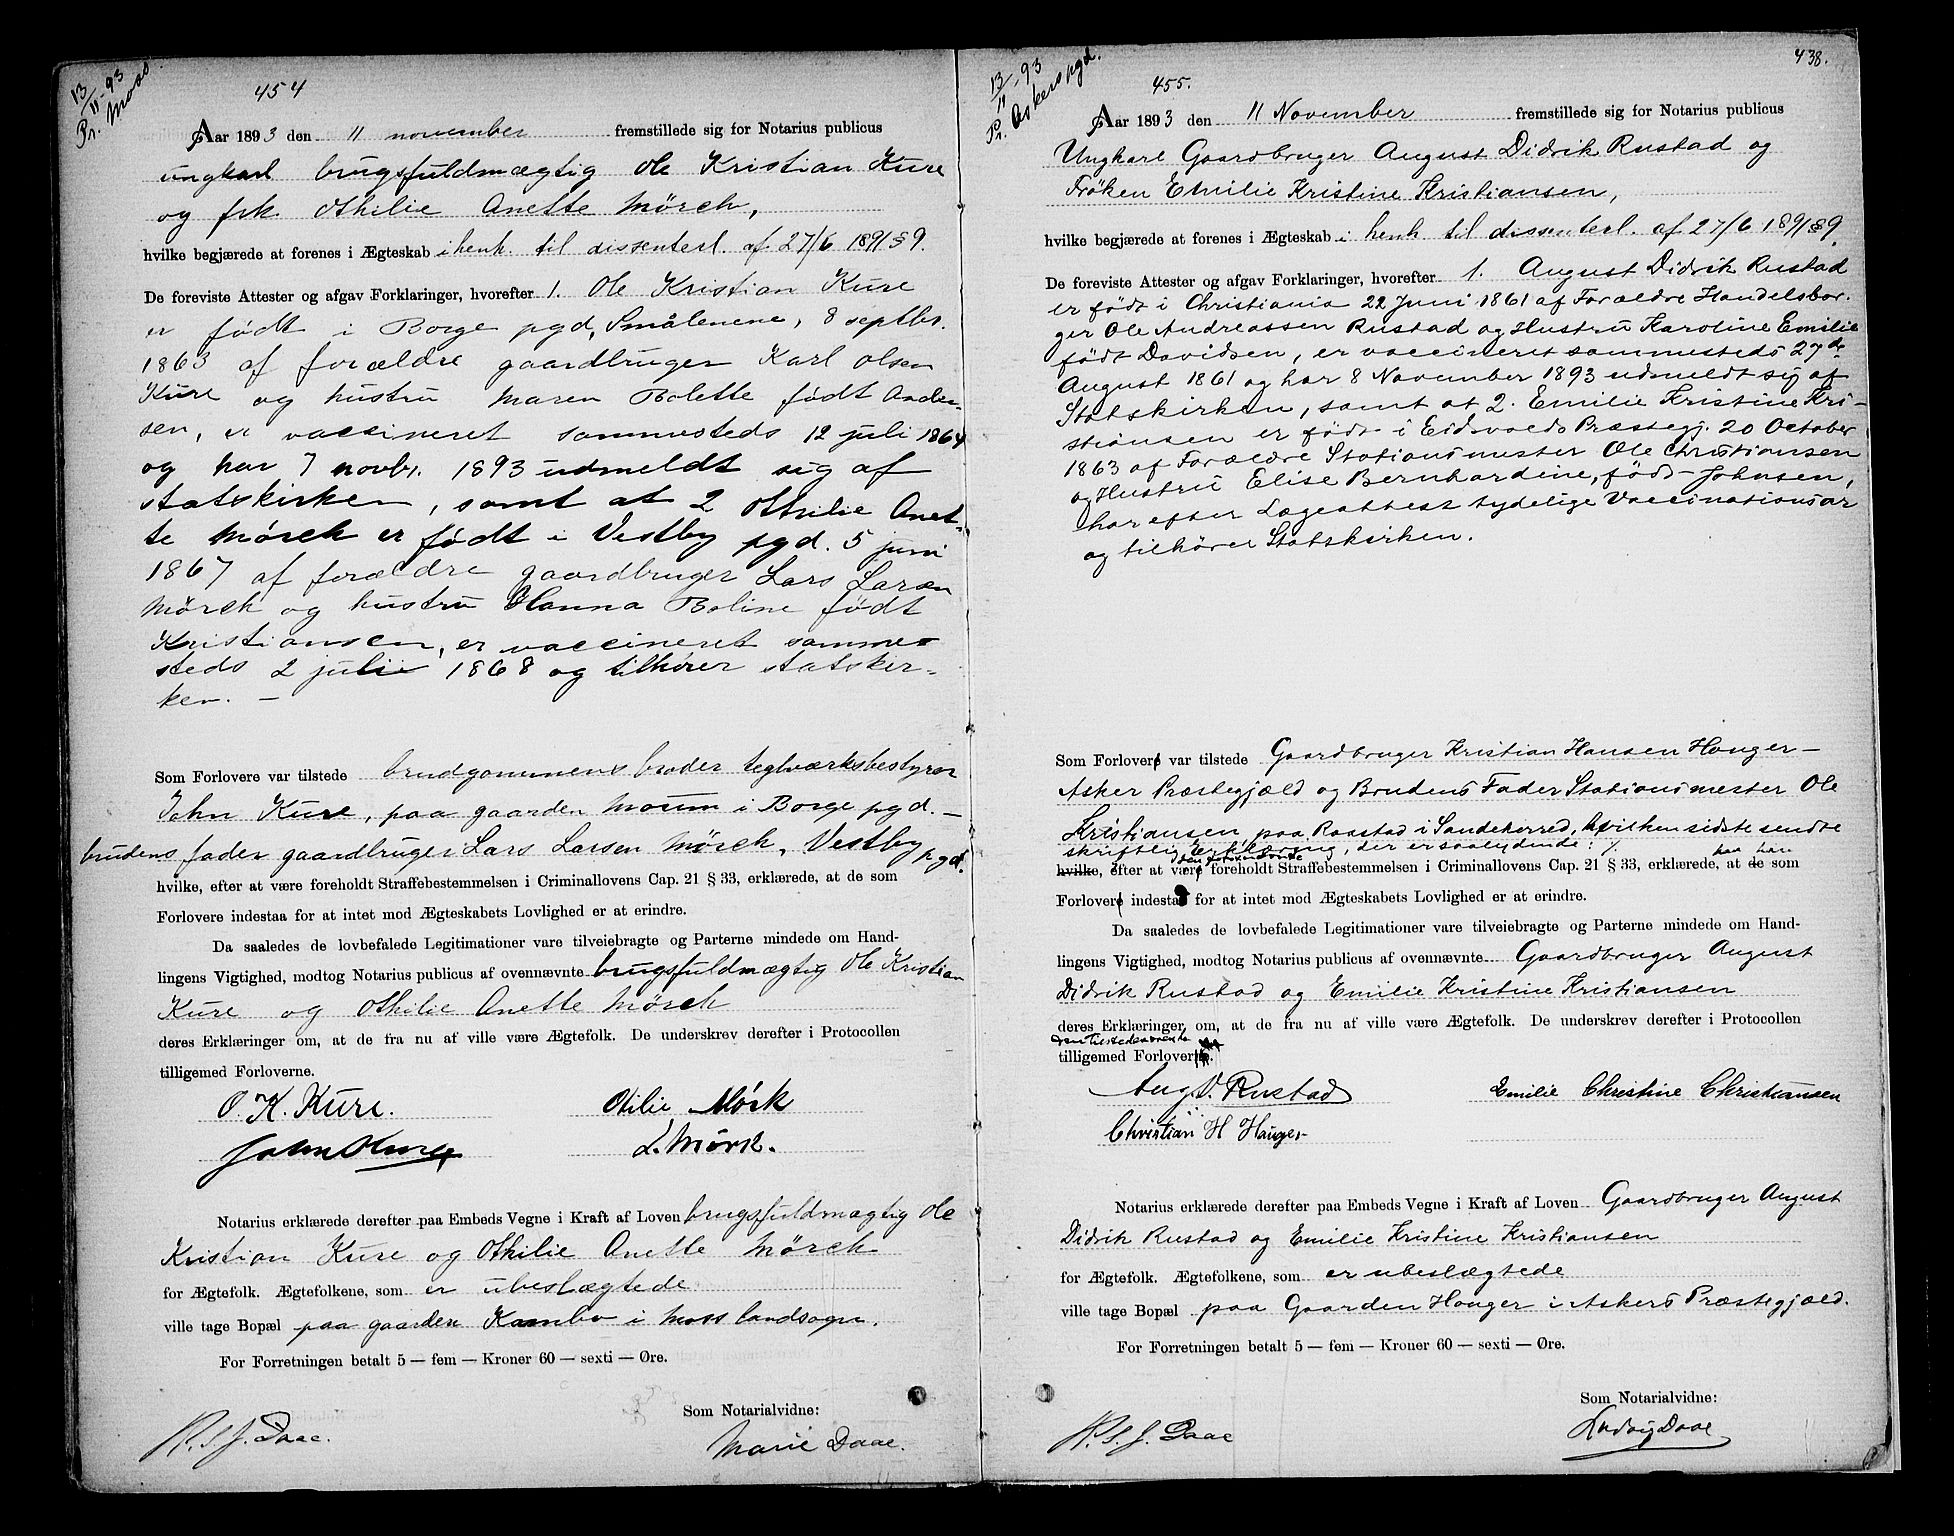 13/11-93
Pr. Moss
454
Aar 1893 den 11 november fremstillede sig for Notarius publicus
ungkarl brugsfuldmægtig Ole Kristian Kure
og frk Othilie Anette Mörch,
hvilke begjærede at forenes i Ægteskab i henh. til dissenterl. af 27/6 1891 § 9.
De foreviste Attester og afgav Forklaringer, hvorefter 1. Ole Kristian Kure
er født i Borge pgd, Smålenene, 8 septbr.
1863 af forældre gaardbruger Karl Olsen
Kure og hustru Maren Bolette født Ander-
sen, er vaccineret sammesteds 12 juli 1864
og har 7 novbr. 1893 udmeldt sig af
statskirken, samt at 2 Othilie Anet-
te Mørch er født i Vestby pgd. 5 juni
1867 af forældre gaardbruger Lars Larsen
Mørch og hustru Hanna Boline født
Kristiansen, er vaccineret samme-
steds 2 juli 1868 og tilhører statskir-
ken. —
Som Forlovere var tilstede brudgommens broder teglværksbestyrer
John Kure, paa gaarden Moum i Borge pgd. —
brudens fader gaardbruger Lars Larsen Mørch, Vestby pgd.
hvilke, efter at være foreholdt Straffebestemmelsen i Criminallovens Cap. 21 § 33, erklærede, at de som
Forlovere indestaa for at intet mod Ægteskabets Lovlighed er at erindre.
Da saaledes de lovbefalede Legitimationer vare tilveiebragte og Parterne mindede om Hand-
lingens Vigtighed, modtog Notarius publicus af ovennævnte brugsfuldmægtig Ole Kristian
Kure og Othilie Anette Mørch
deres Erklæringer om, at de fra nu af ville være Ægtefolk. De underskrev derefter i Protocollen
tilligemed Forloverne.
O. K. Kure. Otilie Mórk
John Kure L. Mørk.
Notarius erklærede derefter paa Embeds Vegne i Kraft af Loven brugsfuldmægtig Ole
Kristian Kure og Othilie Anette Mørch
for Ægtefolk. Ægtefolkene, som er ubeslægtede
ville tage Bopæl paa gaarden Kambo i Moss landsogn.
For Forretningen betalt 5 — fem — Kroner 60 — sexti — Øre.
Som Notarialvidne:
R. S. J. Daae. Marie Daae.
438.
13/11-93
Pr. Askers pgd.
455.
Aar 1893 den 11 November fremstillede sig for Notarius publicus
Ungkarl Gaardbruger August Didrik Rustad og
Frøken Emilie Kristine Kristiansen,
hvilke begjærede at forenes i Ægteskab i henh. til dissenterl. af 27/6 1891 § 9.
De foreviste Attester og afgav Forklaringer, hvorefter 1. August Didrik Rustad
er født i Christiania 22 Juni 1861 af Forældre Handelsbor-
ger Ole Andreassen Rustad og Hustru Karoline Emilie
født Davidsen, er vaccineret sammesteds 27de
August 1861 og har 8 November 1893 udmeldt sig af
Statskirken, samt at 2. Emilie Kristine Kri-
stiansen er født i Eidsvolds Præstegj. 20 October
1863 af Forældre Stationsmester Ole Christiansen
og Hustru Elise Bernhardine, født Johnsen,
har efter Lægeattest tydelige Vaccinationsar
og tilhører Statskirken.
Som Forlovere var tilstede Gaardbruger Kristian Hansen Hauger —
Asker Præstegjæld og Brudens Fader Stationsmester Ole
Kristiansen paa Raastad i Sandeherred, hvilken sidste sendte
skriftlig Erklæring, der er saalydende: ⁒
hvilke, efter at være foreholdt Straffebestemmelsen i Criminallovens Cap. 21 § 33, erklærede, at de som
Forlovere indestaa for at intet mod Ægteskabets Lovlighed er at erindre.
Da saaledes de lovbefalede Legitimationer vare tilveiebragte og Parterne mindede om Hand-
lingens Vigtighed, modtog Notarius publicus af ovennævnte Gaardbruger August
Didrik Rustad og Emilie Kristine Kristiansen
deres Erklæringer om, at de fra nu af ville være Ægtefolk. De underskrev derefter i Protocollen
den tilstedeværende
tilligemed Forlover.
Aug. D. Rustad Emilie Christine Christiansen
Christian H Hauger
Notarius erklærede derefter paa Embeds Vegne i Kraft af Loven Gaardbruger August
Didrik Rustad og Emilie Kristine Kristiansen
for Ægtefolk. Ægtefolkene, som er ubeslægtede
ville tage Bopæl paa Gaarden Hauger i Askers Præstegjæld.
For Forretningen betalt 5 — fem — Kroner 60 — sexti — Øre.
Som Notarialvidne:
R. S. J. Daae Ludvig Daae